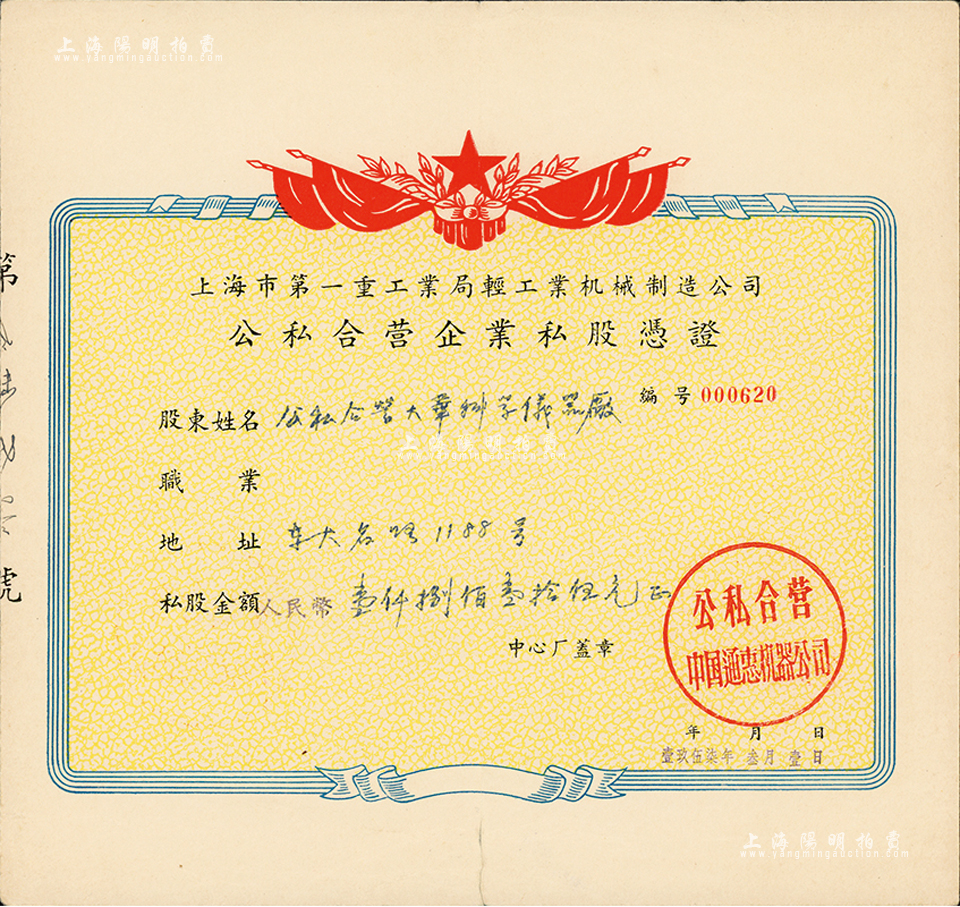 上海陽明拍賣
www.yangmingauction.com
上海市第一重工業局輕工業机械制造公司
公私合营企業私股憑證
编号000620
股東姓名 公私合營大華科学儀器廠
上海陽明拍賣
www.yangmingauction.com
職業
地址 东大名路1188号
私股金額人民幣 壹仟捌佰壹拾伍元正
中心厂蓋章
公私合营
中国通惠机器公司
年月日
壹玖伍柒年叁月壹日
第
號
上海陽明拍賣
www.yangmingauction.com